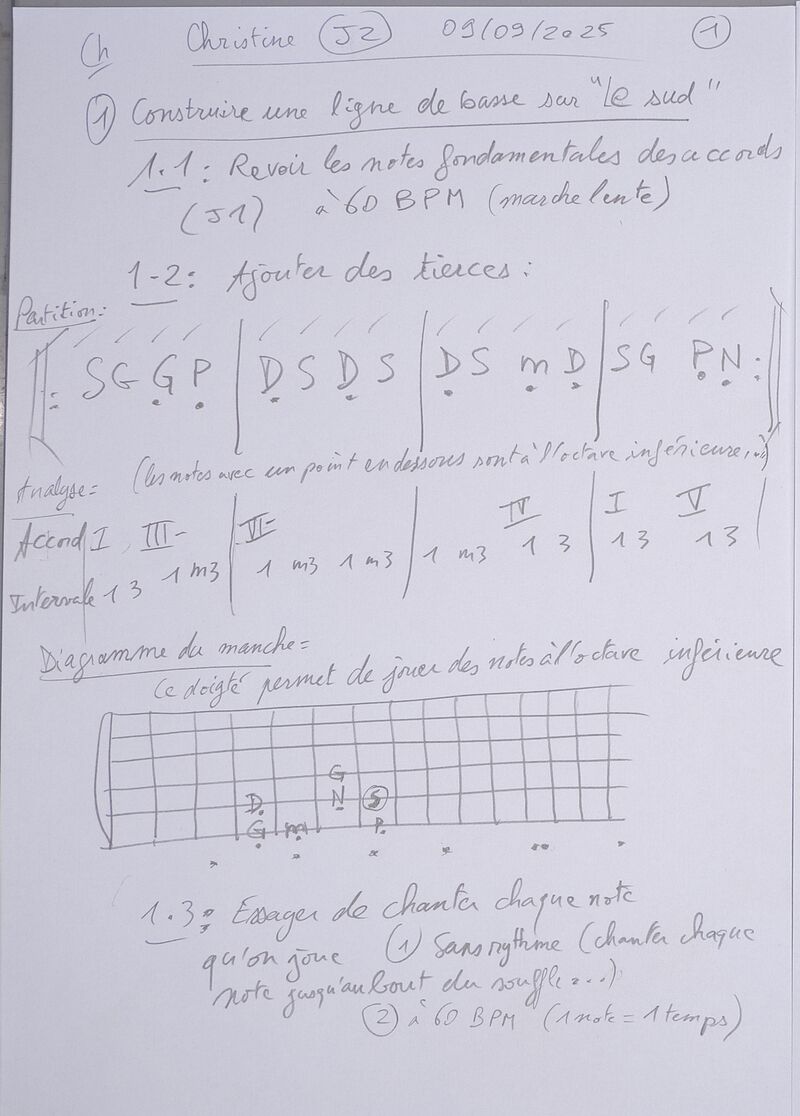 Ch Christine J2 09/09/2025 1
1 Construire une ligne de basse sur "Le sud"
1.1: Revoir les notes fondamentales des accords
(J1) à 60 BPM (marche lente)
1-2: Ajouter des tierces:
Partition:
SG Ġ P | D S D S | D S m D | SG P N :
Analyse= (les notes avec un point en dessous sont à l'octave inférieure...)
Accord I III- | VI- | IV | I V |
Intervale 1 3 1 m3 | 1 m3 1 m3 | 1 m3 1 3 | 1 3 1 3
Diagramme du manche=
Ce doigté permet de jouer des notes à l'octave inférieure
G
D N S
G m P
1.3: Essayer de chanter chaque note
qu'on joue 1 Sans rythme (chanter chaque
note jusqu'au bout du souffle...)
2 à 60 BPM (1 note = 1 temps)